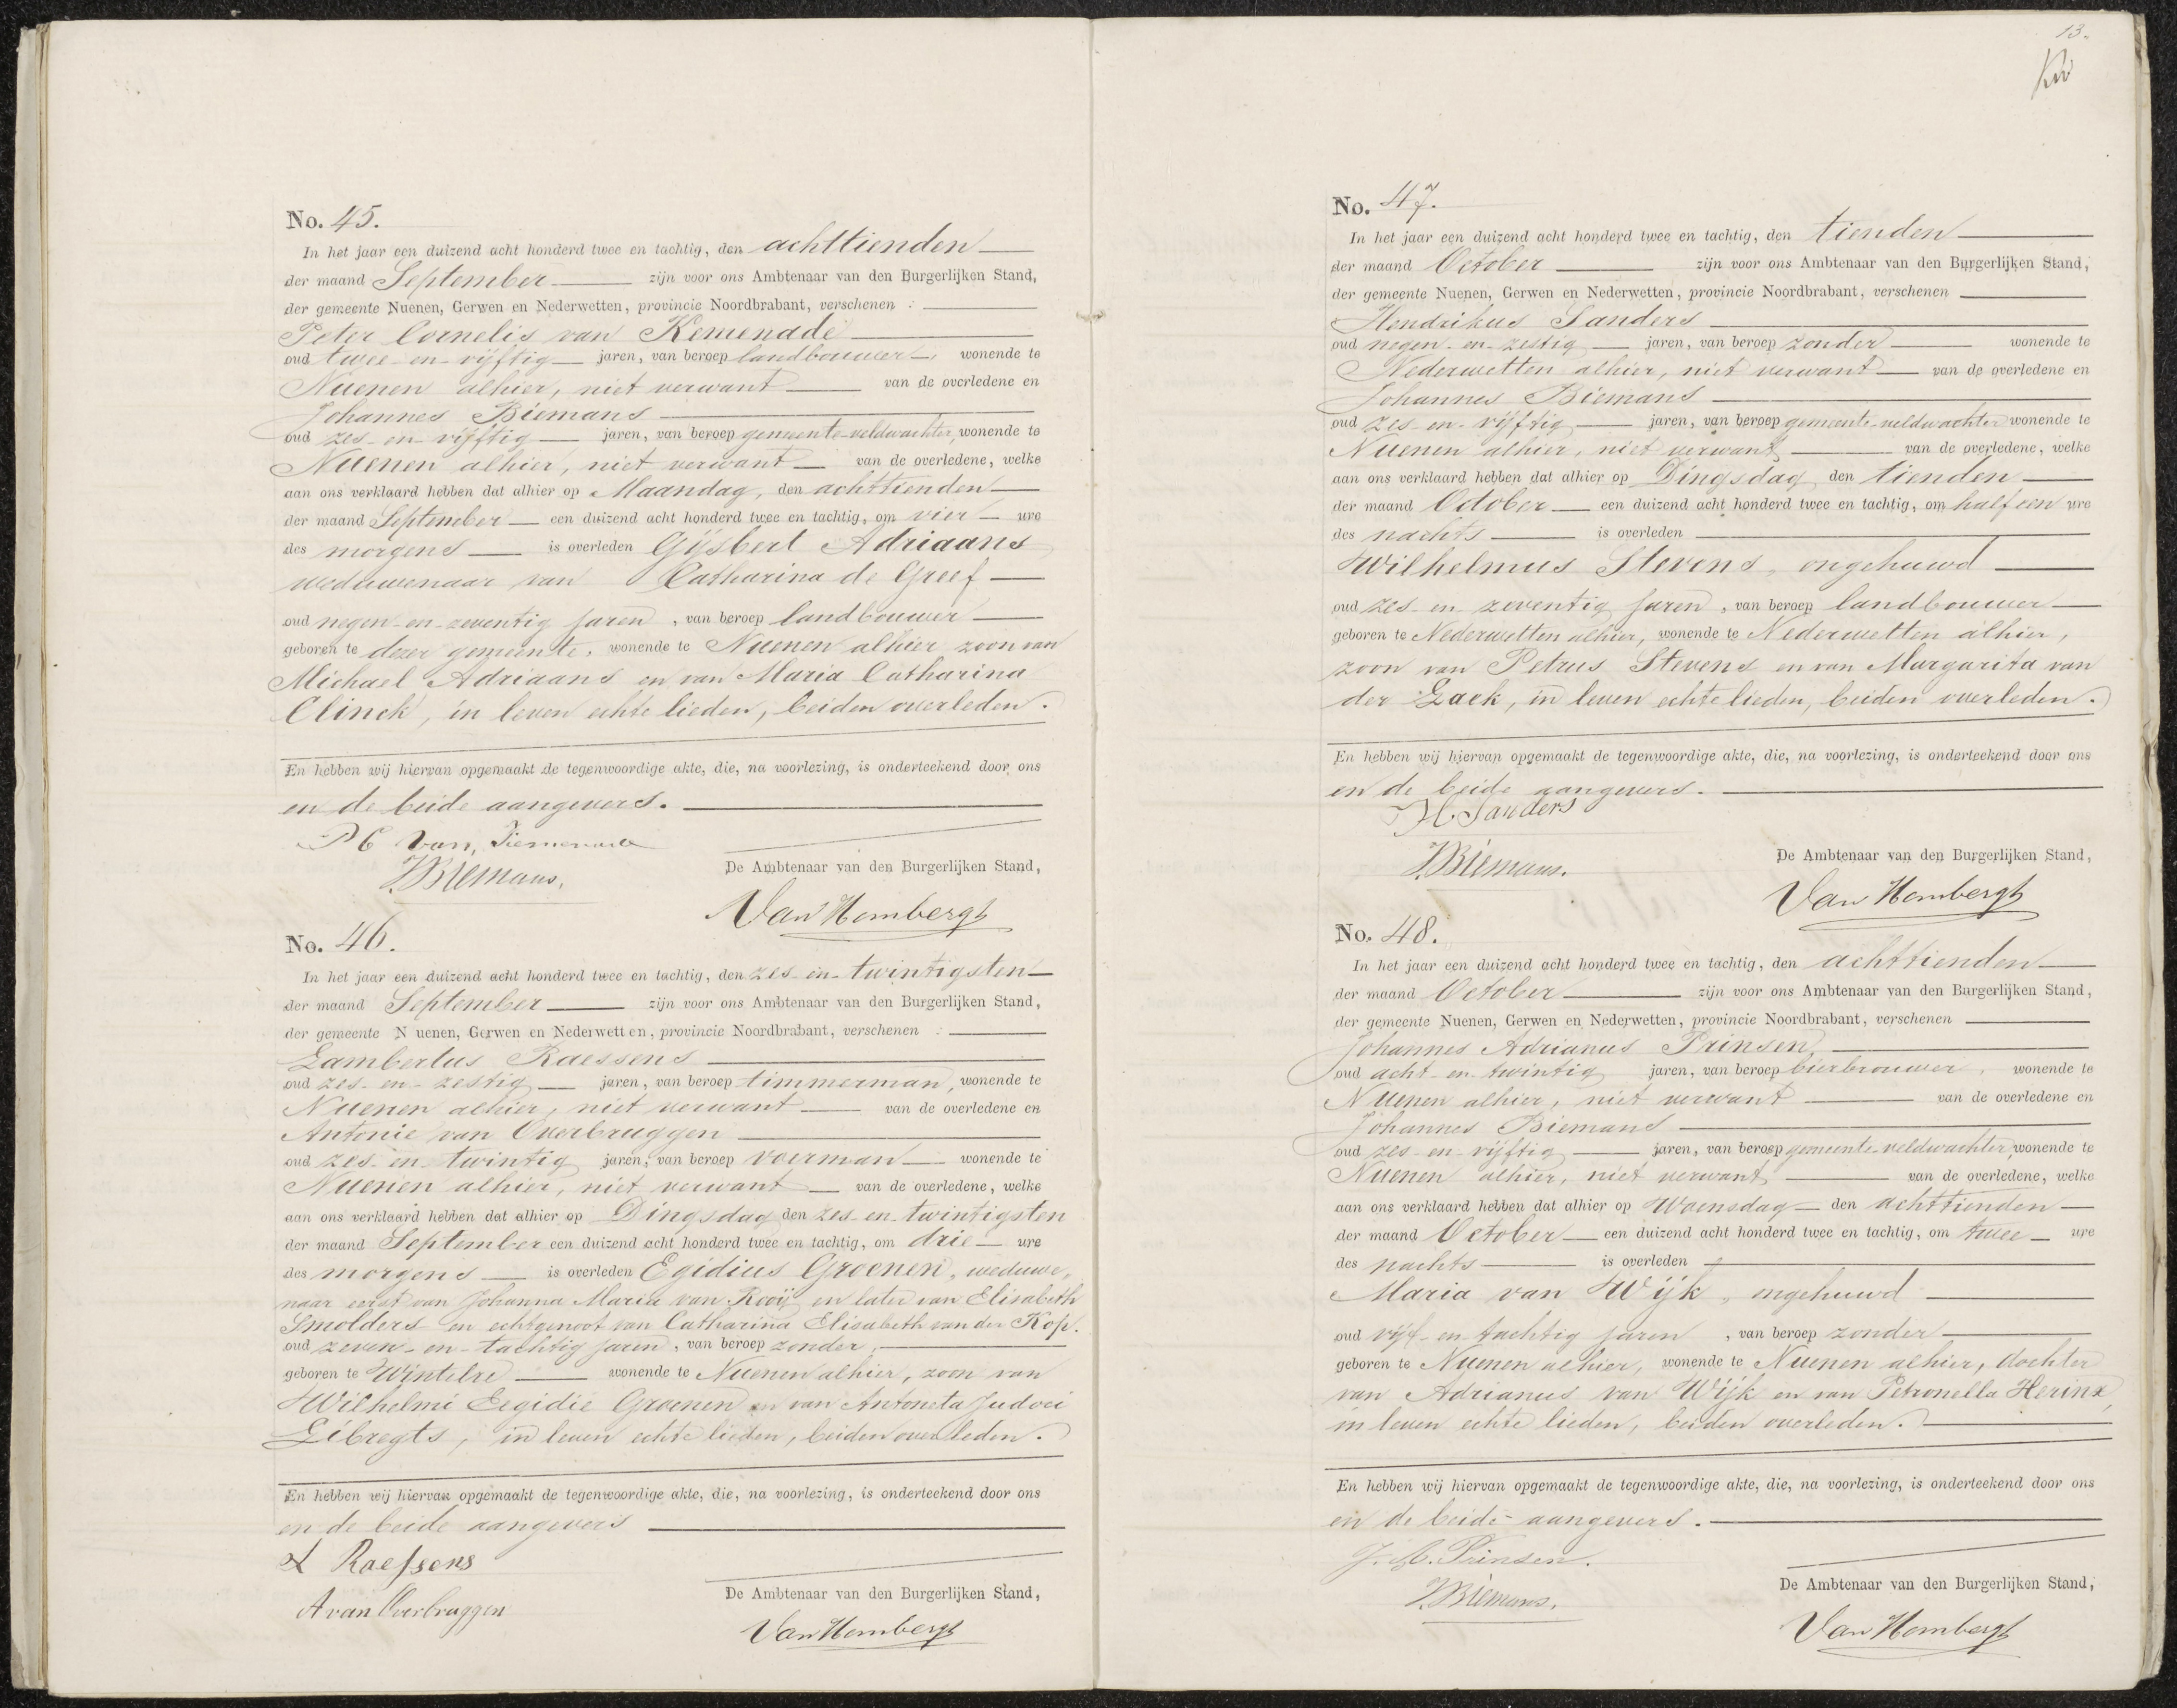 No. 45.
In het jaar een duizend acht honderd twee en tachtig, den achttienden
der maand September zijn voor ons Ambtenaar van den Burgerlijken Stand,
der gemeente Nuenen, Gerwen en Nederwetten, provincie Noordbrabant, verschenen :
Peter Cornelis van Kemenade
oud twee-en-vijftig jaren, van beroep landbouwer, wonende te
Nuenen alhier, niet verwant van de overledene en
Johannes Biemans
oud zes-en-vijftig jaren, van beroep gemeente-veldwachter, wonende te
Nuenen alhier, niet verwant van de overledene, welke
aan ons verklaard hebben dat alhier op Maandag, den achttienden
der maand September een duizend acht honderd twee en tachtig, om vier ure
des morgens is overleden Gijsbert Adriaans
weduwenaar van Catharina de Greef
oud negen-en-zeventig jaren, van beroep landbouwer
geboren te dezer gemeente, wonende te Nuenen alhier zoon van
Michael Adriaans en van Maria Catharina
Clinck, in leven echte lieden, beiden overleden.
En hebben wij hiervan opgemaakt de tegenwoordige akte, die, na voorlezing, is onderteekend door ons
en de beide aangevers.
P C van
J. Biemans.
De Ambtenaar van den Burgerlijken Stand,
Van Hombergh
No. 46.
In het jaar een duizend acht honderd twee en tachtig, den zes-en-twintigsten
der maand September zijn voor ons Ambtenaar van den Burgerlijken Stand,
der gemeente Nuenen, Gerwen en Nederwetten, provincie Noordbrabant, verschenen :
Lambertus Raessens
oud zes-en-zestig jaren, van beroep timmerman, wonende te
Nuenen alhier, niet verwant van de overledene en
Antonie van Overbruggen
oud zes-en-twintig jaren, van beroep voerman wonende te
Nuenen alhier, niet verwant van de overledene, welke
aan ons verklaard hebben dat alhier op Dingsdag den zes-en-twintigsten
der maand September een duizend acht honderd twee en tachtig, om drie ure
des morgens is overleden Egidius Groenen, weduwe,,
naar eerst van Johanna Maria van Rooij en later van Elisabeth
Smolders en echtgenoot van Catharina Elisabeth van der Kop.
oud zeven-en-tachtig jaren, van beroep zonder,
geboren te Wintelre wonende te Nuenen alhier, zoon van
Wilhelmi Eegidie Groenen en van Antoneta Judoci
Libregts, in leven echte lieden, beiden overleden.
En hebben wij hiervan opgemaakt de tegenwoordige akte, die, na voorlezing, is onderteekend door ons
en de beide aangevers
L Raessens
A van Overbruggen
De Ambtenaar van den Burgerlijken Stand,
Van Hombergh
13.
No. 47.
In het jaar een duizend acht honderd twee en tachtig, den tienden
der maand October zijn voor ons Ambtenaar van den Burgerlijken Stand,
der gemeente Nuenen, Gerwen en Nederwetten, provincie Noordbrabant, verschenen
Hendrikus Sanders
oud negen-en-zestig jaren, van beroep zonder wonende te
Nederwetten alhier, niet verwant van de overledene en
Johannes Biemans
oud zes-en-vijftig jaren, van beroep gemeente-veldwachter wonende te
Nuenen alhier, niet verwant van de overledene, welke
aan ons verklaard hebben dat alhier op Dingsdag den tienden
der maand October een duizend acht honderd twee en tachtig, om half een ure
des nachts is overleden
Wilhelmus Stevens, ongehuwd
oud zes-en-zeventig jaren, van beroep landbouwer
geboren te Nederwetten alhier, wonende te Nederwetten alhier,
zoon van Petrus Stevens en van Margarita van
der Zack, in leven echte lieden, beiden overleden.
En hebben wij hiervan opgemaakt de tegenwoordige akte, die, na voorlezing, is onderteekend door ons
en de beide aangevers.
H. Sanders
J. Biemans.
De Ambtenaar van den Burgerlijken Stand,
Van Hombergh
No. 48.
In het jaar een duizend acht honderd twee en tachtig, den achttienden
der maand October zijn voor ons Ambtenaar van den Burgerlijken Stand,
der gemeente Nuenen, Gerwen en Nederwetten, provincie Noordbrabant, verschenen
Johannes Adrianus Prinsen
oud acht-en-twintig jaren, van beroep bierbrouwer, wonende te
Nuenen alhier, niet verwant van de overledene en
Johannes Biemans
oud zes-en-vijftig jaren, van beroep gemeente-veldwachter, wonende te
Nuenen alhier, niet verwant van de overledene, welke
aan ons verklaard hebben dat alhier op Woensdag den achttienden
der maand October een duizend acht honderd twee en tachtig, om twee ure
des nachts is overleden
Maria van Wijk, ongehuwd
oud vijf-en-tachtig jaren, van beroep zonder
geboren te Nuenen alhier, wonende te Nuenen alhier, dochter
van Adrianus van Wijk en van Petronella Herinx,
in leven echte lieden, beiden overleden.
En hebben wij hiervan opgemaakt de tegenwoordige akte, die, na voorlezing, is onderteekend door ons
en de beide aangevers.
J. A. Prinsen.
J. Biemans.
De Ambtenaar van den Burgerlijken Stand,
Van Hombergh